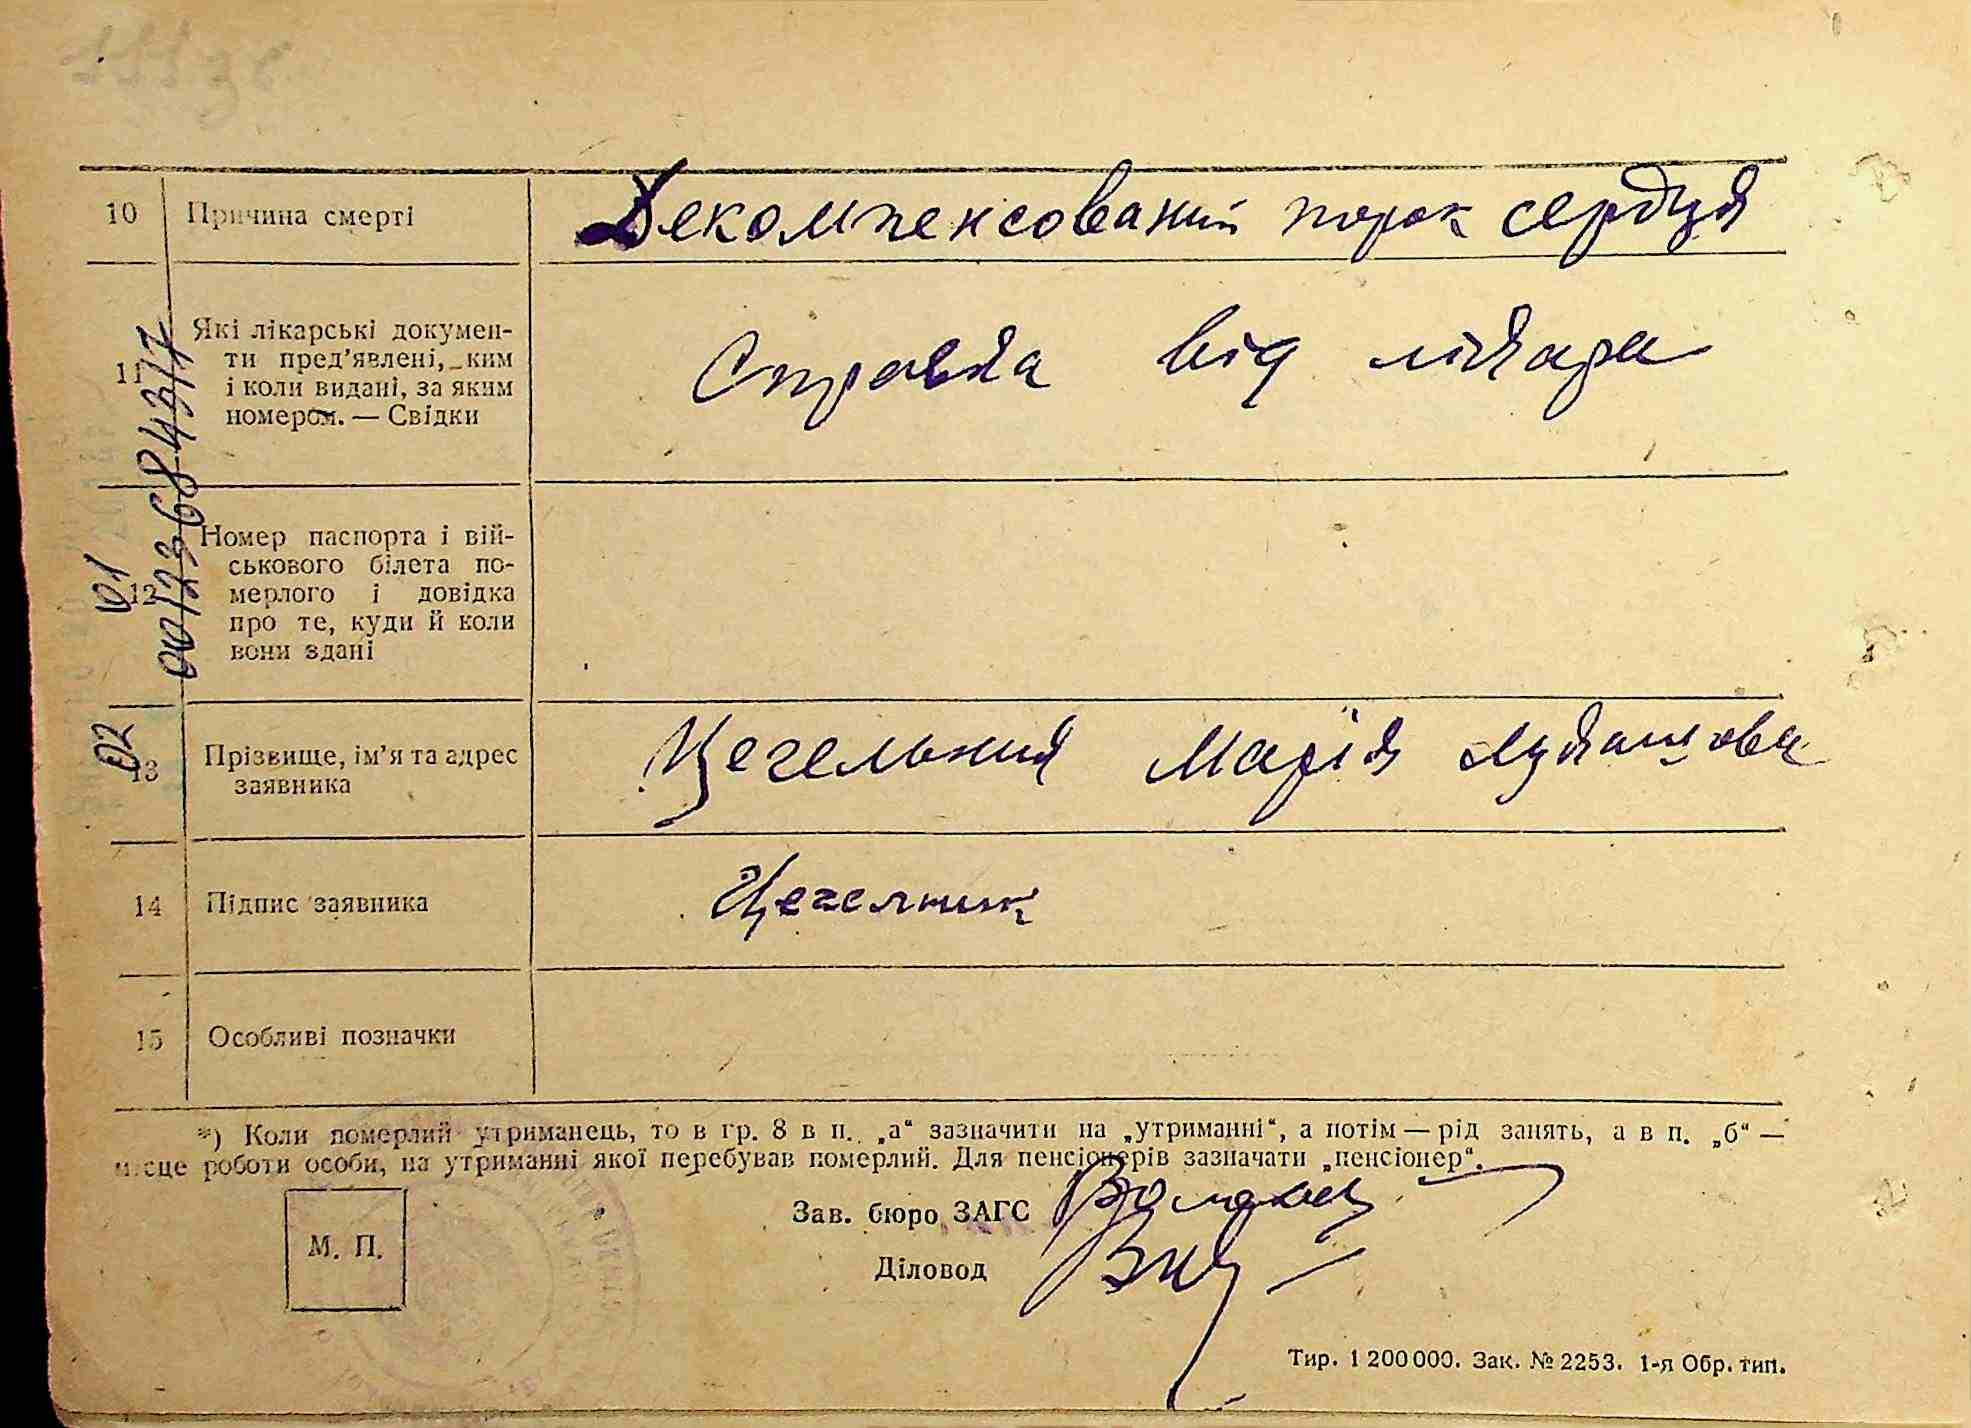 10 Причина смерті Декомпенсований порок сердця
11 Які лікарські докумен-
ти пред'явлені, ким
і коли видані, за яким
номером. — Свідки
Справка від лікара
12 Номер паспорта і вій-
ськового білета по-
мерлого і довідка
про те, куди й коли
вони здані
13 Прізвище, ім'я та адрес
заявника
Цегельник Марія Лукашовна
14 Підпис заявника Цегелник
15 Особливі позначки
01
00123684377
02
*) Коли померлий утриманець, то в гр. 8 в п. „а“ зазначити на „утриманні“, а потім — рід занять, а в п. „б“ —
місце роботи особи, на утриманні якої перебував померлий. Для пенсіонерів зазначати „пенсіонер“.
Зав. бюро ЗАГС
М. П.
Діловод
Тир. 1 200 000. Зак. № 2253. 1-я Обр. тип.